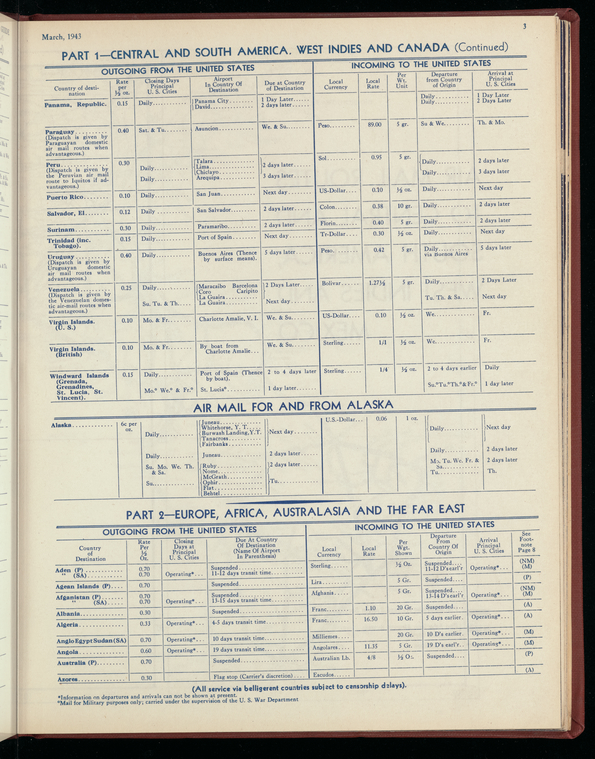 March, 1943
3
PART 1—CENTRAL AND SOUTH AMERICA. WEST INDIES AND CANADA (Continued)
OUTGOING FROM THE UNITED STATES
INCOMING TO THE UNITED STATES
Country of desti-nation | Rate per ½ oz. | Closing Days Principal U. S. Cities | Airport In Country Of Destination | Due at Country of Destination | Local Currency | Local Rate | Per Wt. Unit | Departure from Country of Origin | Arrival at Principal U. S. Cities
Panama, Republic. 0.15 Daily Panama City 1 Day Later Daily 1 Day Later
David 2 days later Daily 2 Days Later
Paraguay 0.40 Sat. & Tu. Asuncion We. & Su. Peso 89.00 5 gr. Su & We. Th. & Mo.
(Dispatch is given by
Paraguayan domestic
air mail routes when
advantageous.)
Peru 0.30 Daily Talara 2 days later Sol 0.95 5 gr. Daily 2 days later
(Dispatch is given by Lima
the Peruvian air mail Daily Chiclayo 3 days later Daily 3 days later
route to Iquitos if ad- Arequipa
vantageous.)
Puerto Rico 0.10 Daily San Juan Next day US-Dollar 0.10 ½ oz. Daily Next day
Salvador, El 0.12 Daily San Salvador 2 days later Colon 0.38 10 gr. Daily 2 days later
Surinam 0.30 Daily Paramaribo 2 days later Florin 0.40 5 gr. Daily 2 days later
Trinidad (inc. Tobago). 0.15 Daily Port of Spain Next day Tr-Dollar 0.30 ½ oz. Daily Next day
Uruguay 0.40 Daily Buenos Aires (Thence by surface means). 5 days later Peso 0.42 5 gr. Daily via Buenos Aires 5 days later
(Dispatch is given by
Uruguayan domestic
air mail routes when
advantageous.)
Venezuela 0.25 Daily Maracaibo Barcelona 2 Days Later Bolivar 1.27½ 5 gr. Daily 2 Days Later
(Dispatch is given by Coro Caripito
the Venezuelan domes- La Guaira
tic air-mail routes when Su. Tu. & Th. La Guaira Next day Tu. Th. & Sa. Next day
advantageous.)
Virgin Islands. (U. S.) 0.10 Mo. & Fr. Charlotte Amalie, V. I. We. & Su. US-Dollar 0.10 ½ oz. We. Fr.
Virgin Islands. (British) 0.10 Mo. & Fr. By boat from Charlotte Amalie We. & Su. Sterling 1/1 ½ oz. We. Fr.
Windward Islands 0.15 Daily Port of Spain (Thence by boat). 2 to 4 days later Sterling 1/4 ½ oz. 2 to 4 days earlier Daily
(Grenada,
Grenadines, Mo.* We.* & Fr.* St. Lucia* 1 day later Su.*Tu.*Th.*&Fr.* 1 day later
St. Lucia, St.
Vincent).
AIR MAIL FOR AND FROM ALASKA
Alaska 6c per oz. Daily Juneau Next day U.S.-Dollar 0.06 1 oz. Daily Next day
Whitehorse, Y. T.
Burwash Landing, Y.T.
Tanacross
Fairbanks
Daily Juneau 2 days later Daily 2 days later
Su. Mo. We. Th. & Sa. Ruby 2 days later Mo. Tu. We. Fr. & Sa. 2 days later
Nome
Su. McGrath Tu. Tu. Th.
Ophir
Flat
Bethel
PART 2—EUROPE, AFRICA, AUSTRALASIA AND THE FAR EAST
OUTGOING FROM THE UNITED STATES
INCOMING TO THE UNITED STATES
Country of Destination | Rate Per ½ Oz. | Closing Days at Principal U. S. Cities | Due At Country Of Destination (Name Of Airport In Parenthesis) | Local Currency | Local Rate | Per Wgt. Shown | Departure From Country Of Origin | Arrival Principal U. S. Cities | See Foot-note Page 8
Aden (P) 0.70 Suspended Sterling ½ Oz. Suspended (NM)
" (SA) 0.70 Operating* 11-12 days transit time 11-12 D'searl'r Operating* (M)
Agean Islands (P) 0.70 Suspended Lira 5 Gr. Suspended (P)
Afganistan (P) 0.70 Suspended Afghania 5 Gr. Suspended (NM)
" (SA) 0.70 Operating* 13-15 days transit time 13-14 D'searl'r Operating* (M)
Albania 0.30 Suspended Franc 1.10 20 Gr. Suspended (A)
Algeria 0.33 Operating* 4-5 days transit time Franc 16.50 10 Gr. 5 days earlier Operating* (A)
Anglo Egypt Sudan (SA) 0.70 Operating* 10 days transit time Milliemes 20 Gr. 10 D's earlier Operating* (M)
Angola 0.60 Operating* 19 days transit time Angolares 11.35 5 Gr. 19 D's earl'r Operating* (M)
Australia (P) 0.70 Suspended Australian Lb. 4/8 ½ Oz. Suspended (P)
Azores 0.30 Flag stop (Carrier's discretion) Escudos (A)
(All service via belligerent countries subject to censorship delays).
*Information on departures and arrivals can not be shown at present.
*Mail for Military purposes only; carried under the supervision of the U. S. War Department